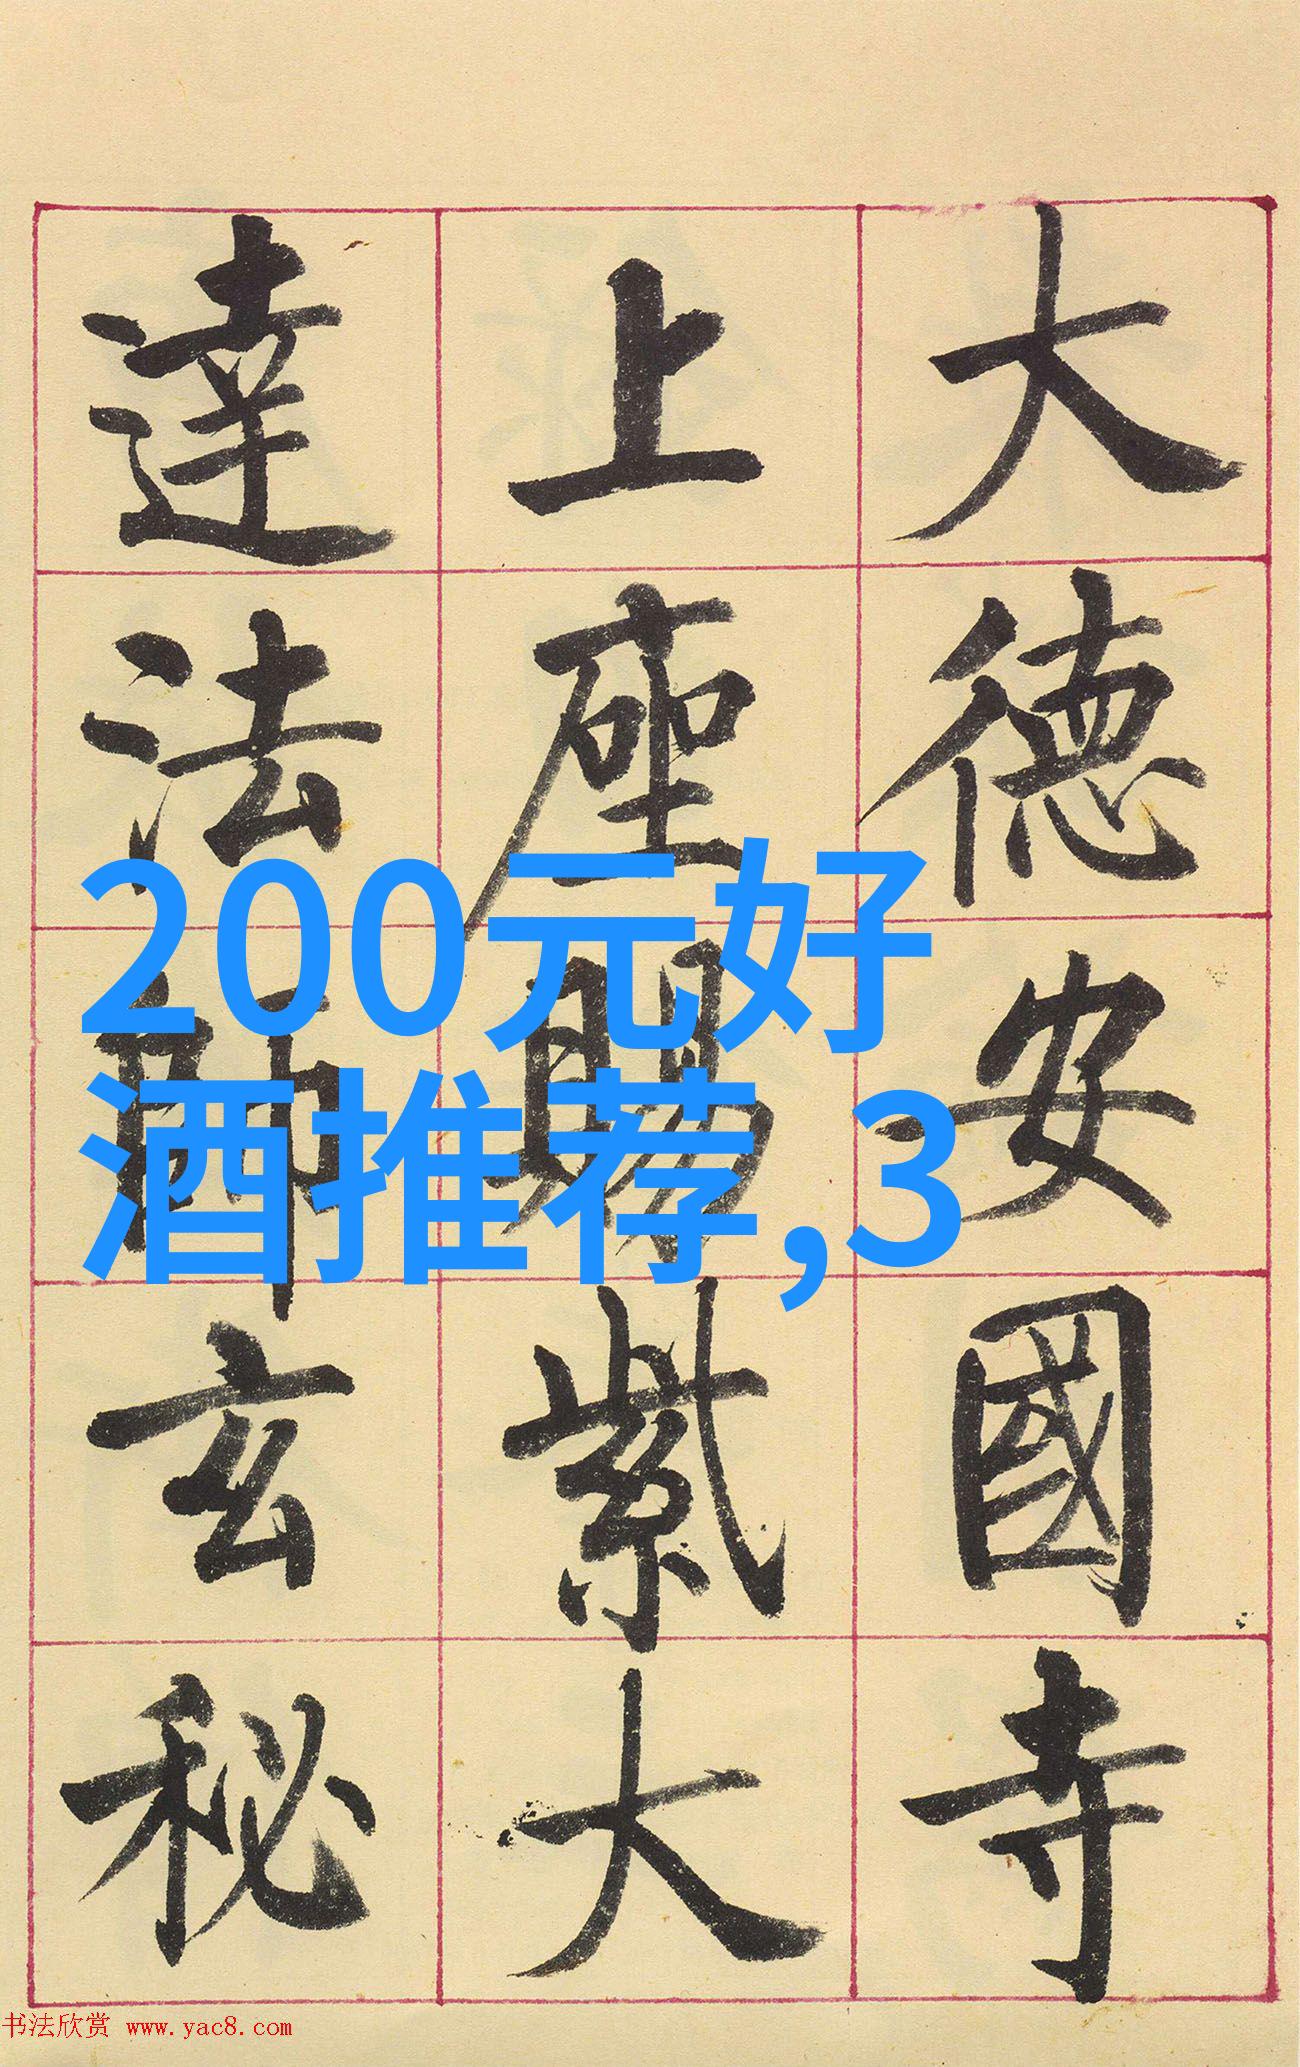 大德安國寺
上座賜紫大
達法師玄秘
200元好
酒推荐,3
书法欣赏 www.yac8.com